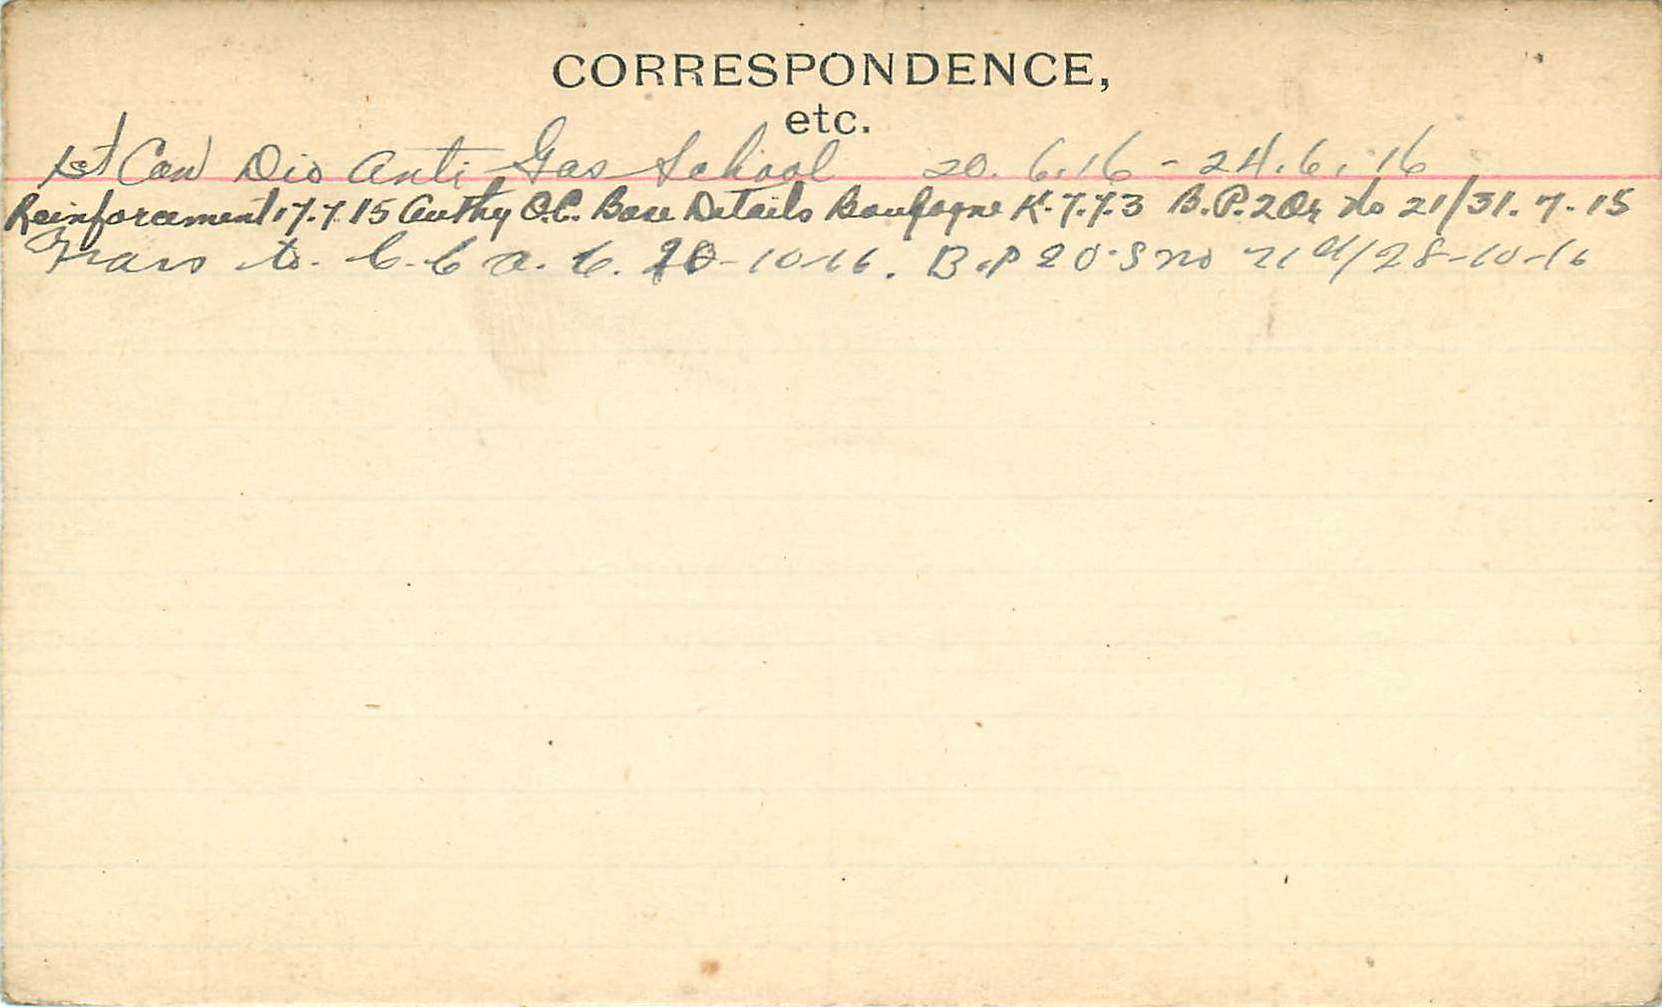 CORRESPONDENCE,
etc.
1st Can Div Anti Gas School 20.6.16 - 24.6.16
Reinforcement 17.7.15 Authy O.C. Base Details Boulogne K.7.7.3 B.P. 2 Or No 21/31.7.15
Trans to C.C.A.C. -10-16. B.P 2 O.S no 71 d/28-10-16